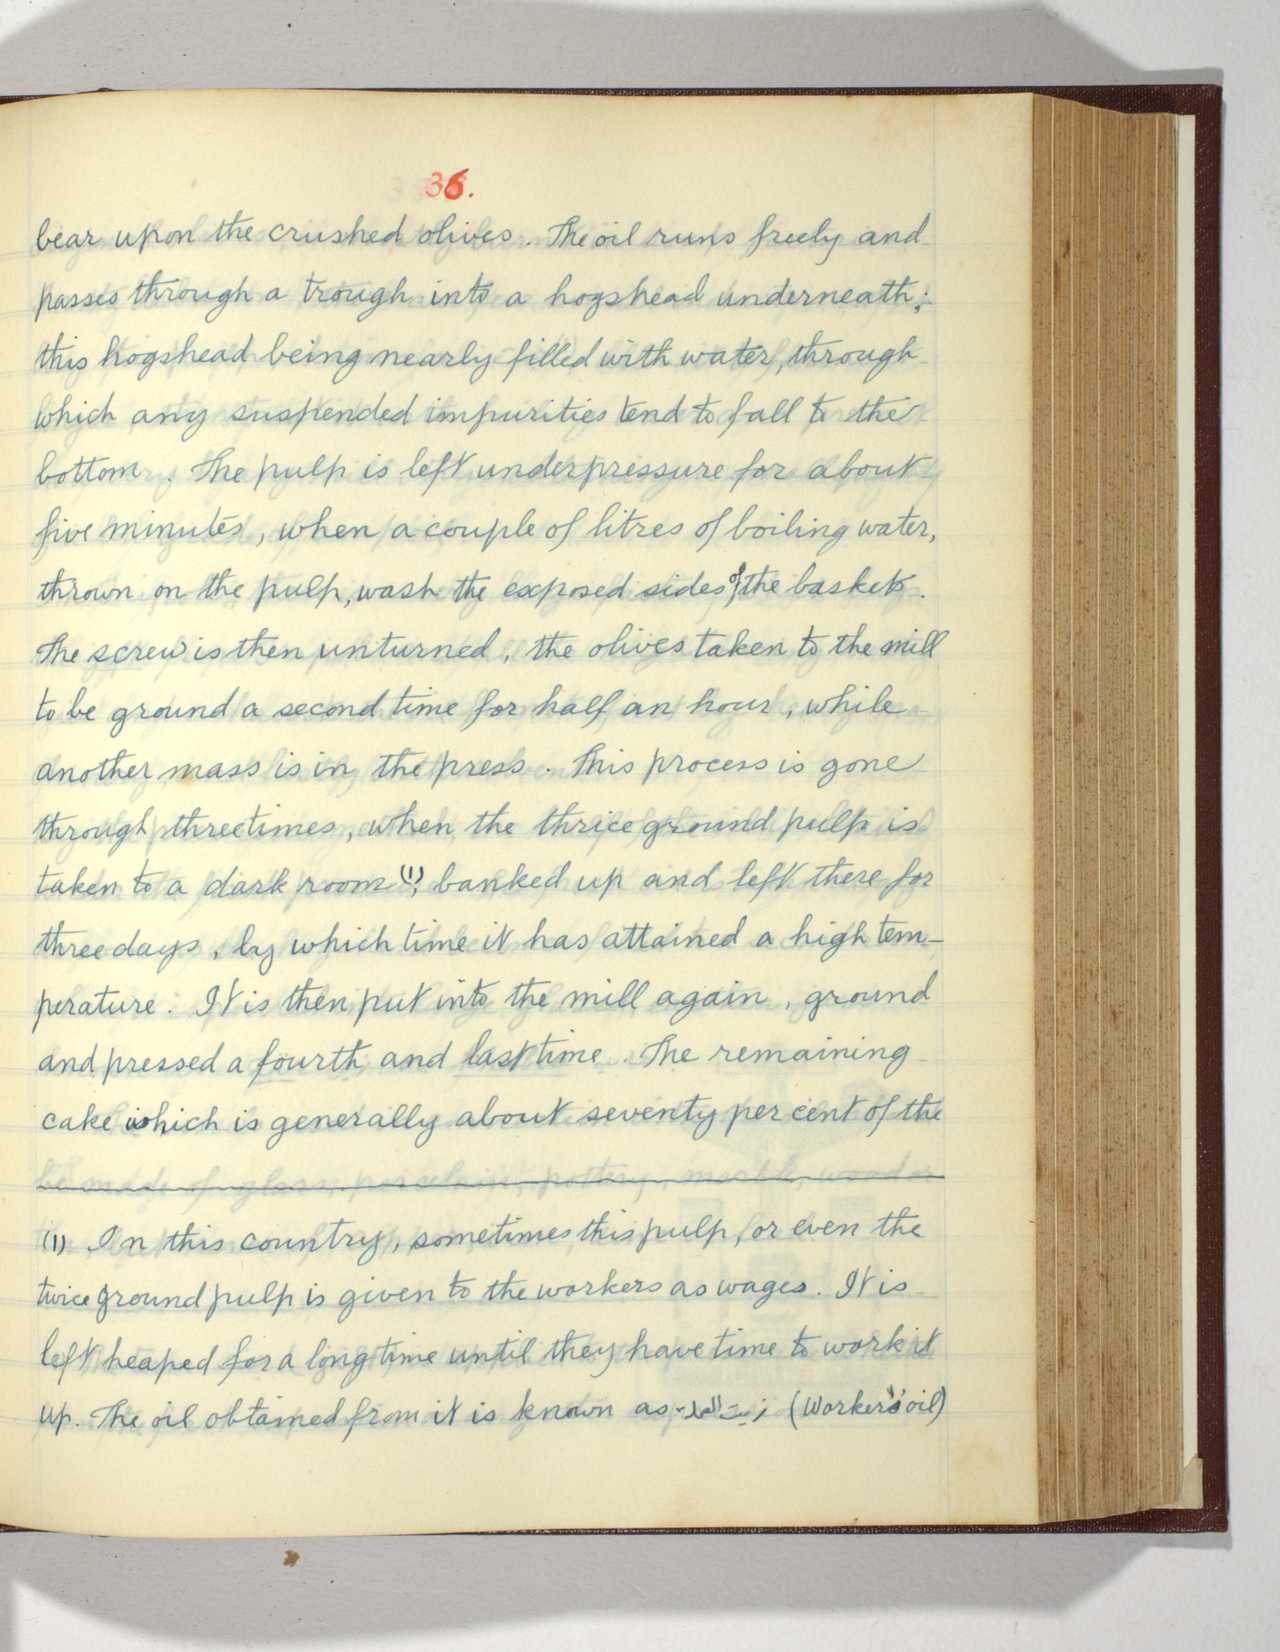 36.
bear upon the crushed olives. The oil runs freely and
passes through a trough into a hogshead underneath;
this hogshead being nearly filled with water, through
which any suspended impurities tend to fall to the
bottom. The pulp is left under pressure for about
five minutes, when a couple of litres of boiling water,
thrown on the pulp, wash the exposed sides of the basket.
The screw is then unturned, the olives taken to the mill
to be ground a second time for half an hour, while
another mass is in the press. This process is gone
through three times, when the thrice ground pulp is
taken to a dark room (1), banked up and left there for
three days, by which time it has attained a high tem-
perature. It is then put into the mill again, ground
and pressed a fourth and last time. The remaining
cake which is generally about seventy per cent of the
(1) In this country, sometimes this pulp, or even the
twice ground pulp is given to the workers as wages. It is
left heaped for a long time until they have time to work it
up. The oil obtained from it is known as زيت (Workers' oil)